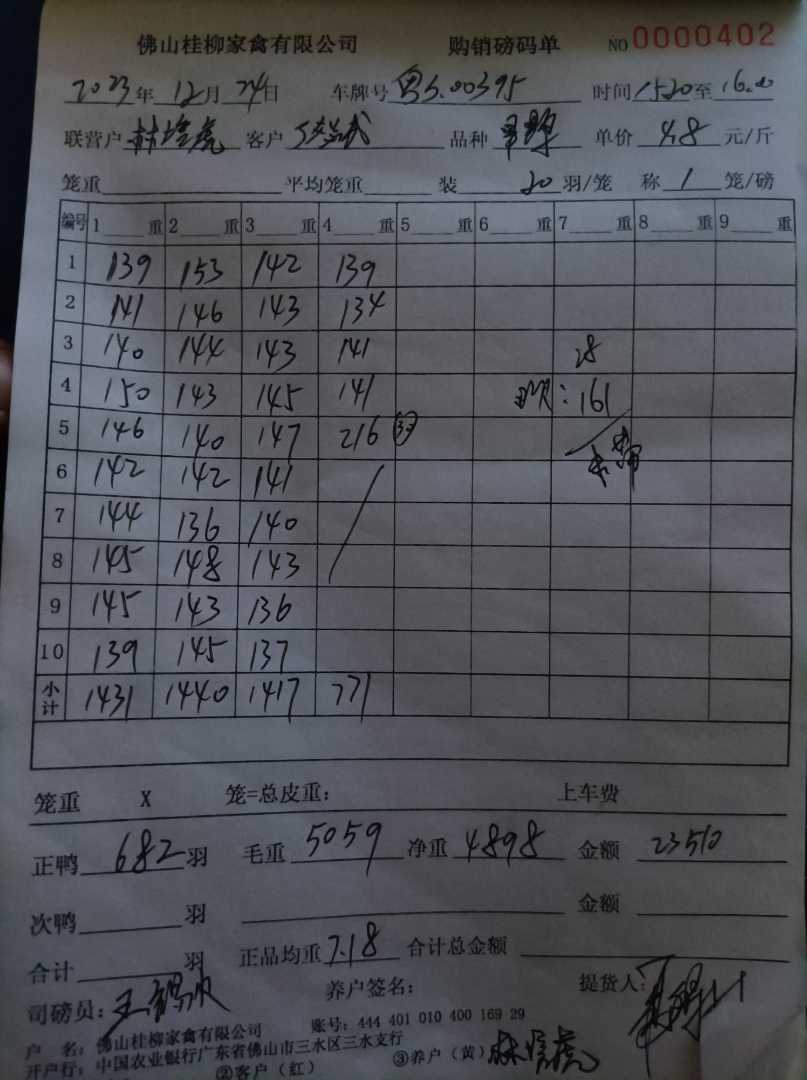 佛山桂柳家禽有限公司 购销磅码单 NO 0000402
2023年 12月 24日 车牌号 粤S.00395 时间 1520至 16.00
联营户 林培虎 客户 品种 单价 4.8 元/斤
笼重 平均笼重 装 20 羽/笼 称 1 笼/磅
编号 1 重 2 重 3 重 4 重 5 重 6 重 7 重 8 重 9 重
1 139 153 142 139
2 141 146 143 134
3 140 144 143 141 28
4 150 143 145 141 : 161
5 146 140 147 216
6 142 142 141
7 144 136 140
8 145 148 143
9 145 143 136
10 139 145 137
小计 1431 1440 1417 771
笼重 X 笼=总皮重: 上车费
正鸭 682 羽 毛重 5059 净重 4898 金额 23510
次鸭 羽 金额
合计 羽 正品均重 7.18 合计总金额
司磅员: 养户签名: 提货人:
户 名: 佛山桂柳家禽有限公司 账号: 444 401 010 400 169 29
开户行: 中国农业银行广东省佛山市三水区三水支行
②客户（红） ③养户（黄） 林培虎